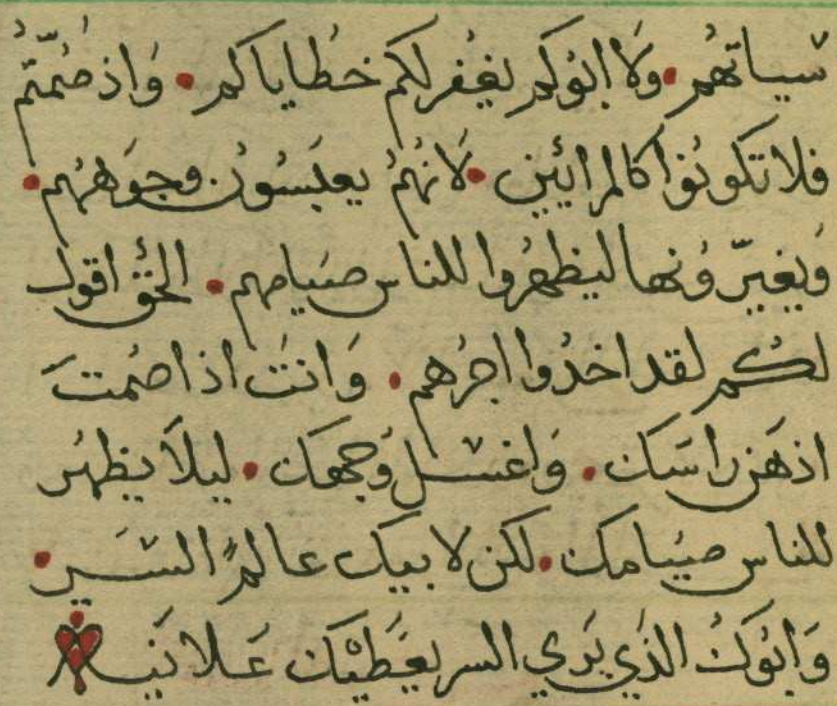 سياتهمُ. وَلا ابُوكم يغفر لكم خطاياكم. وَاذ صُمتُم
فلا تكونوُا كالمرائين. لانهُمُ يعبَسُونُ وجوَههُم.
وُيغيرّ وُنها ليظهرُوا للناس صيَامهم. الحقُ اقول
لكُم لقد اخدُوا اجرُهم. وَانتَ اذا صُمتَ
اذهَن راسَك. وَاغسَل وُجهَك. ليلاَ يظهرُ
للناس صيُامك. لكن لابيك عالمُ السَر.
وَابُوكَ الذَي يَرَي السر يعَطيَك عَلانيَه